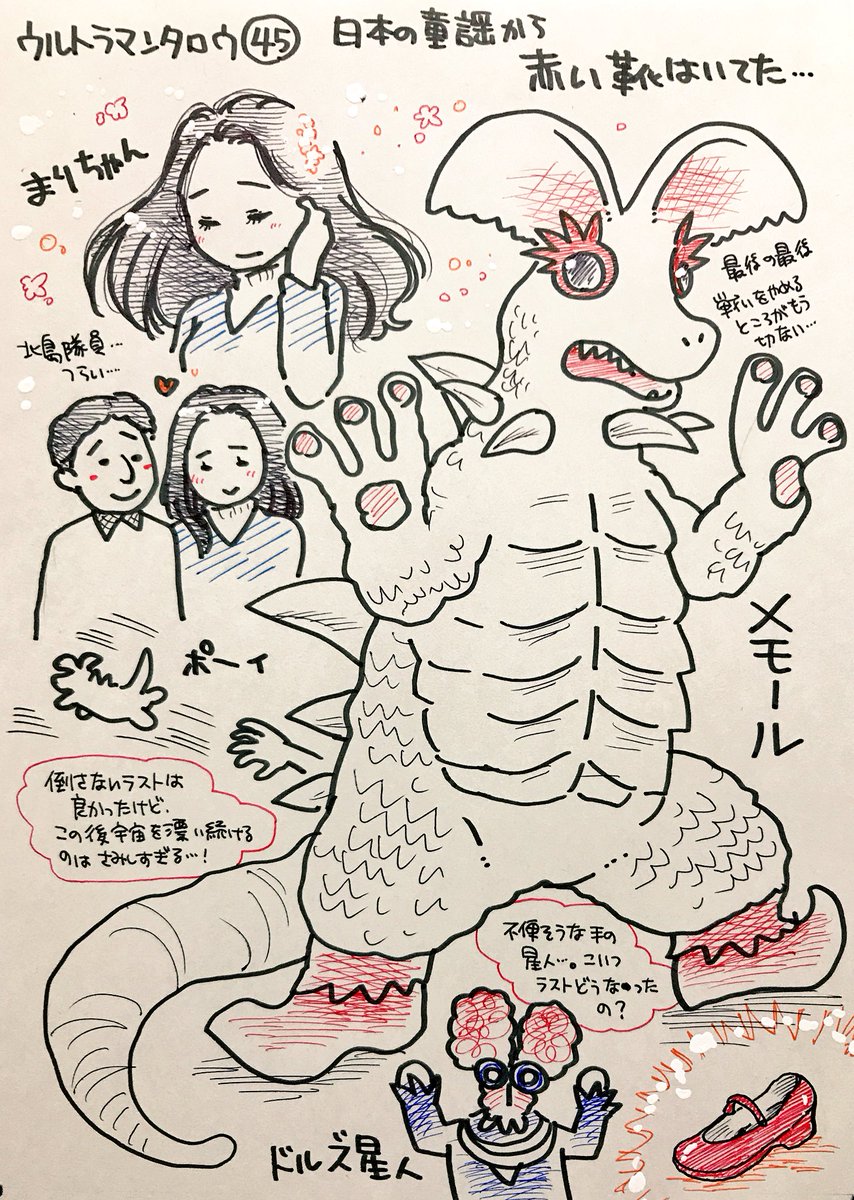 ウルトラマンタロウ㊺ 日本の童謡から
赤い靴はいてた…
まりちゃん
最後の最後
戦いをやめる
ところがもう
切ない…
北島隊員…
つらい…
ポーイ
メモール
倒さないラストは
良かったけど、
この後宇宙を漂い続ける
のはさみしすぎる…!
不便そうな手の
星人…。こいつ
ラストどうなったの?
ドルズ星人